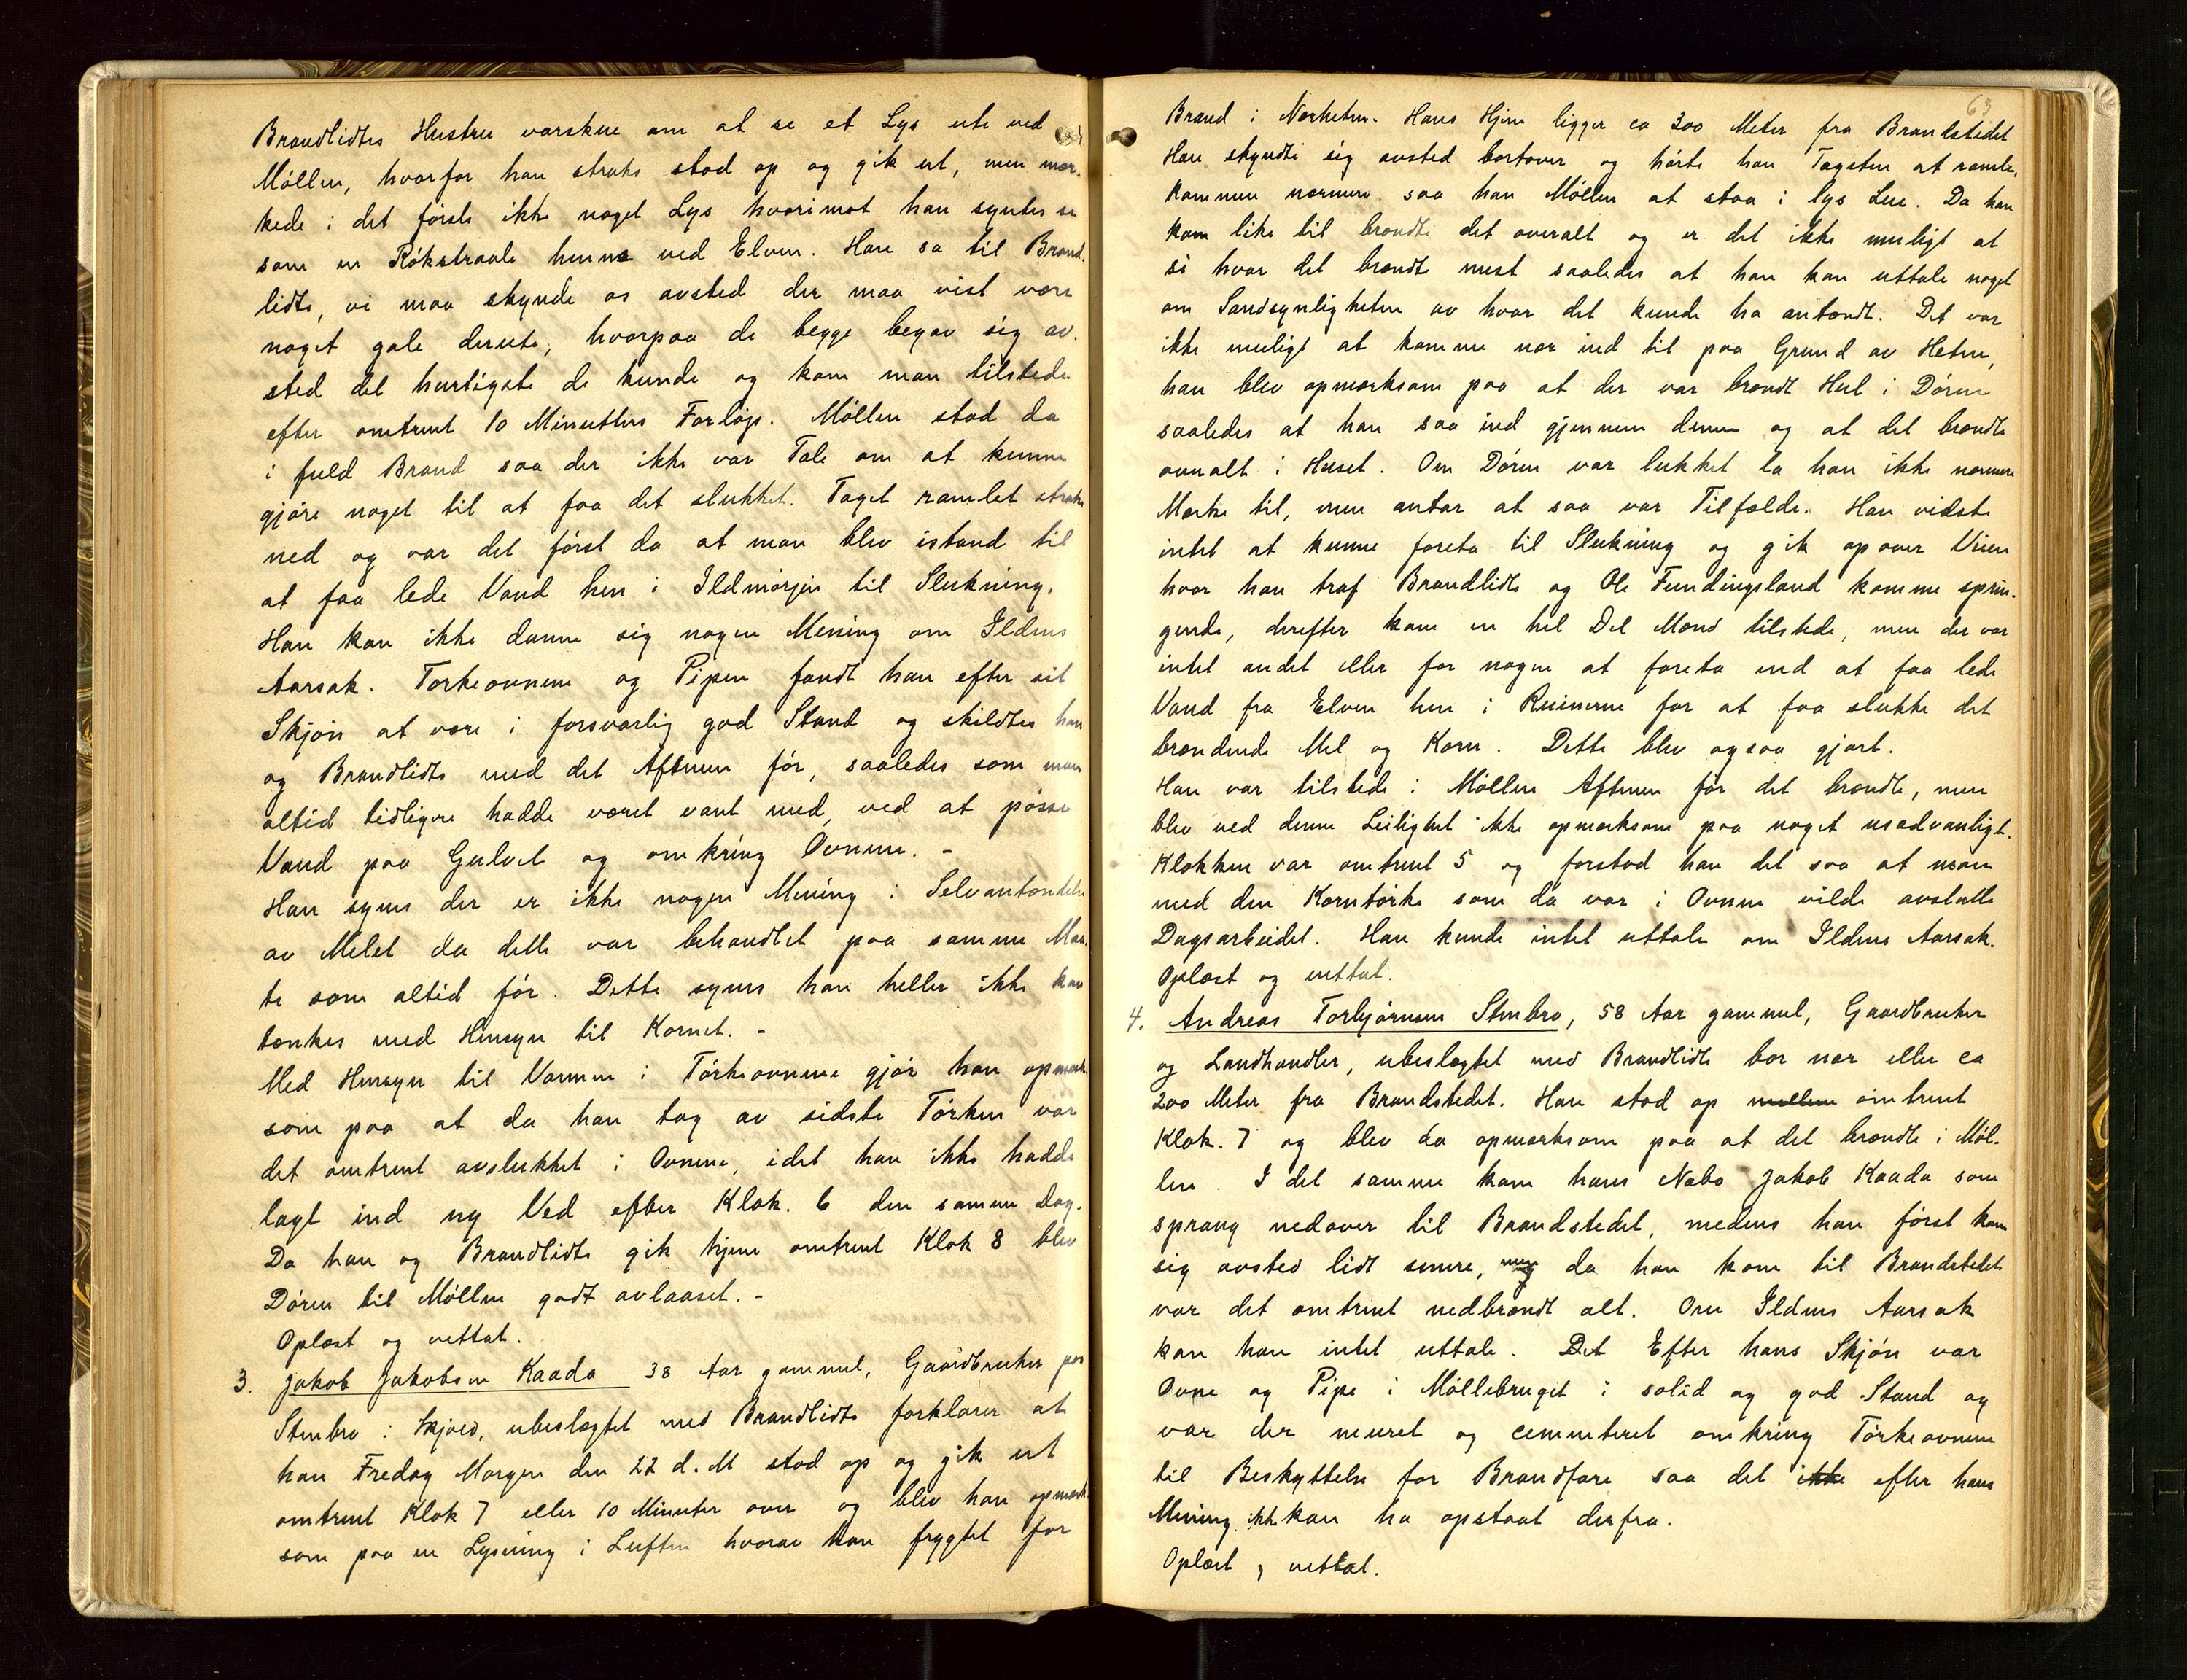 Brandlidtes Hustru varskue om at se et Lys ute ved
Møllen, hvorfor han straks stod op og gik ut, men mær-
kede i det første ikke noget Lys hvorimot han syntes se
som en Røkstraale henne ved Elven. Han sa til Brand-
lidte, vi maa skynde os avsted der maa vist være
noget gale derute, hvorpaa de begge begav sig av-
sted det hurtigste de kunde og kom man tilstede
efter omtrent 10 Minutters Forløp. Møllen stod da
i fuld Brand saa der ikke var Tale om at kunne
gjøre noget til at faa det slukket. Taget ramlet straks
ned og var det først da at man blev istand til
at faa lede Vand hen i Ildmørjen til Slukning.
Han kan ikke danne sig nogen Mening om Ildens
Aarsak. Tørkeovnene og Pipen fandt han efter sit
Skjøn at være i forsvarlig god Stand og skildtes han
og Brandlidte med det Aftenen før, saaledes som man
altid tidligere hadde været vant med, ved at pøsse
Vand paa Gulvet og omkring Ovnene. -
Han synes der er ikke nogen Mening i Selvantændelse
av Melet da dette var behandlet paa samme Maa-
te som altid før. Dette synes han heller ikke kan
tænkes med Hensyn til Kornet. -
Med Hensyn til Varmen i Tørkeovnene gjør han opmærk-
som paa at da han tog av sidste Tørken var
det omtrent avslukket i Ovnene, idet han ikke hadde
lagt ind ny Ved efter Klok. 6 den samme Dag.
Da han og Brandlidte gik hjem omtrent Klok 8 blev
Døren til Møllen godt avlaaset. -
Oplæst og vettat.
3. Jakob Jakobsen Kaada 38 Aar gammel, Gaardbruker paa
Stenbro i Skjold, ubeslægtet med Brandlidte forklarer at
han Fredag Morgen den 22 d. M stod op og gik ut
omtrent Klok 7 eller 10 Minuter over og blev han opmærk-
som paa en Lysning i Luften hvorav han frygtet for
63
Brand i Nærheten. Hans Hjem ligger ca 300 Meter fra Brandstedet
Han skyndte sig avsted bortover og hørte han Tagsten at ramle,
kommen nærmere saa han Møllen at staa i lys Lue. Da han
kom like til brændte det overalt og er det ikke muligt at
si hvor det brændte mest saaledes at han kan uttale noget
om Sandsynligheten av hvor det kunde ha antændt. Det var
ikke muligt at komme nær ind til paa Grund av Heten,
han blev opmærksom paa at der var brændt Hul i Døren
saaledes at han saa ind gjennem denne og at det brændte
overalt i Huset. Om Døren var lukket la han ikke nærmere
Mærke til, men antar at saa var Tilfælde. Han vidste
intet at kunne foreta til Slukning og gik opover Veien
hvor han traf Brandlidte og Ole Fundingsland komme sprin-
gende, derefter kom en hel Del Mænd tilstede, men der var
intet andet eller for nogen at foreta end at faa lede
Vand fra Elven hen i Ruinerne for at faa slukke det
brændende Mel og Korn. Dette blev ogsaa gjort.
Han var tilstede i Møllen Aftenen før det brændte, men
blev ved denne Leilighet ikke opmerksom paa noget usedvanligt.
Klokken var omtrent 5 og forstod han det saa at man
med den Korntørke som da var i Ovnene vilde avslutte
Dagsarbeidet. Han kunde intet uttale om Ildens Aarsak.
Oplæst og vettat.
4. Andreas Torbjørnsen Stenbro, 58 Aar gammel, Gaardbruker
og Landhandler, ubeslægtet med Brandlidte bor nær eller ca
200 Meter fra Brandstedet. Han stod op mellem omtrent
Klok. 7 og blev da opmærksom paa at det brændte i Møl-
len. I det samme kom hans Nabo Jakob Kaada som
sprang nedover til Brandstedet, medens han først kom
sig avsted lidt senere, men da han kom til Brandstedet
var det omtrent nedbrændt alt. Om Ildens Aarsak
kan han intet uttale. Det Efter hans Skjøn var
Ovne og Pipe i Møllebruget i solid og god Stand og
var der muret og cementeret omkring Tørkeovnene
til Beskyttelse for Brandfare saa det ikke efter hans
Mening ikke kan ha opstaat derfra.
Oplæst og vettat.